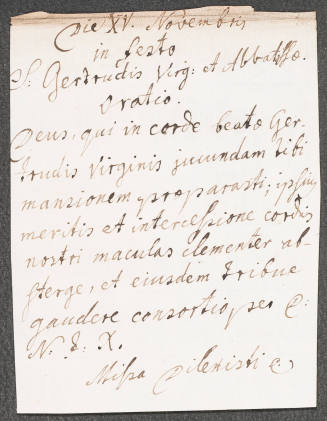 Die XV. Novembris
in festo
S: Gertrudis Virg: et Abbatissæ.
Oratio.
Deus, qui in corde beatæ Ger-
trudis Virginis jucundam tibi
mansionem præparasti; ipsius
meritis et intercessione cordis
nostri maculas clementer ab-
sterge, et eiusdem tribue
gaudere consortio, per C:
N: I: X.
Missa Dilexisti &